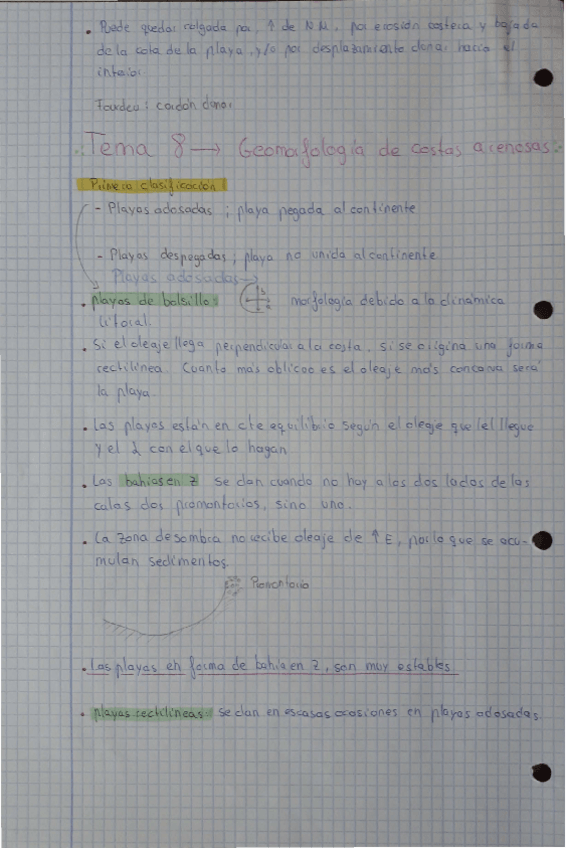 • Puede quedar colgada por ↑ de NM, por erosión costera y bajada
de la cota de la playa, y/o por desplazamiento dunar hacia el
interior
cordón dunar
Tema 8 → Geomorfología de costas arenosas:
Primera clasificación
- Playas adosadas; playa pegada al continente
- Playas despegadas; playa no unida al continente
Playas adosadas →
• playas de bolsillo: morfología debido a la dinámica
litoral.
• Si el oleaje llega perpendicular a la costa, si se origina una forma
rectilínea. Cuanto más oblicuo es el oleaje más concava será
la playa.
• Las playas están en cte equilibrio según el oleaje que le llegue
y el con el que lo hagan
• Las bahías en Z se dan cuando no hay a los dos lados de las
calas dos promontorios, sino uno.
• La zona de sombra no recibe oleaje de ↑E, por lo que se acu-
mulan sedimentos.
Promontorio
• Las playas en forma de bahía en Z, son muy estables
• playas rectilíneas: se dan en escasas ocasiones en playas adosadas.